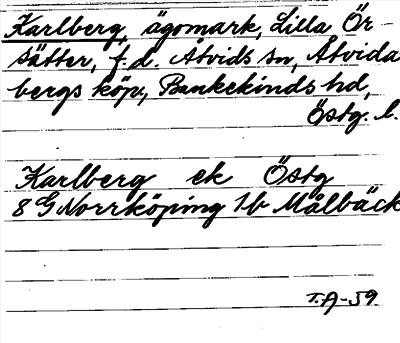 Karlberg, ägomark, Lilla Ör-
sätter, f.d. Åtvids sn, Åtvida
bergs köp, Bankekinds hd,
Östg. l.
Karlberg ek Östg
8 G Norrköping 1b Målbäck
T.A-59